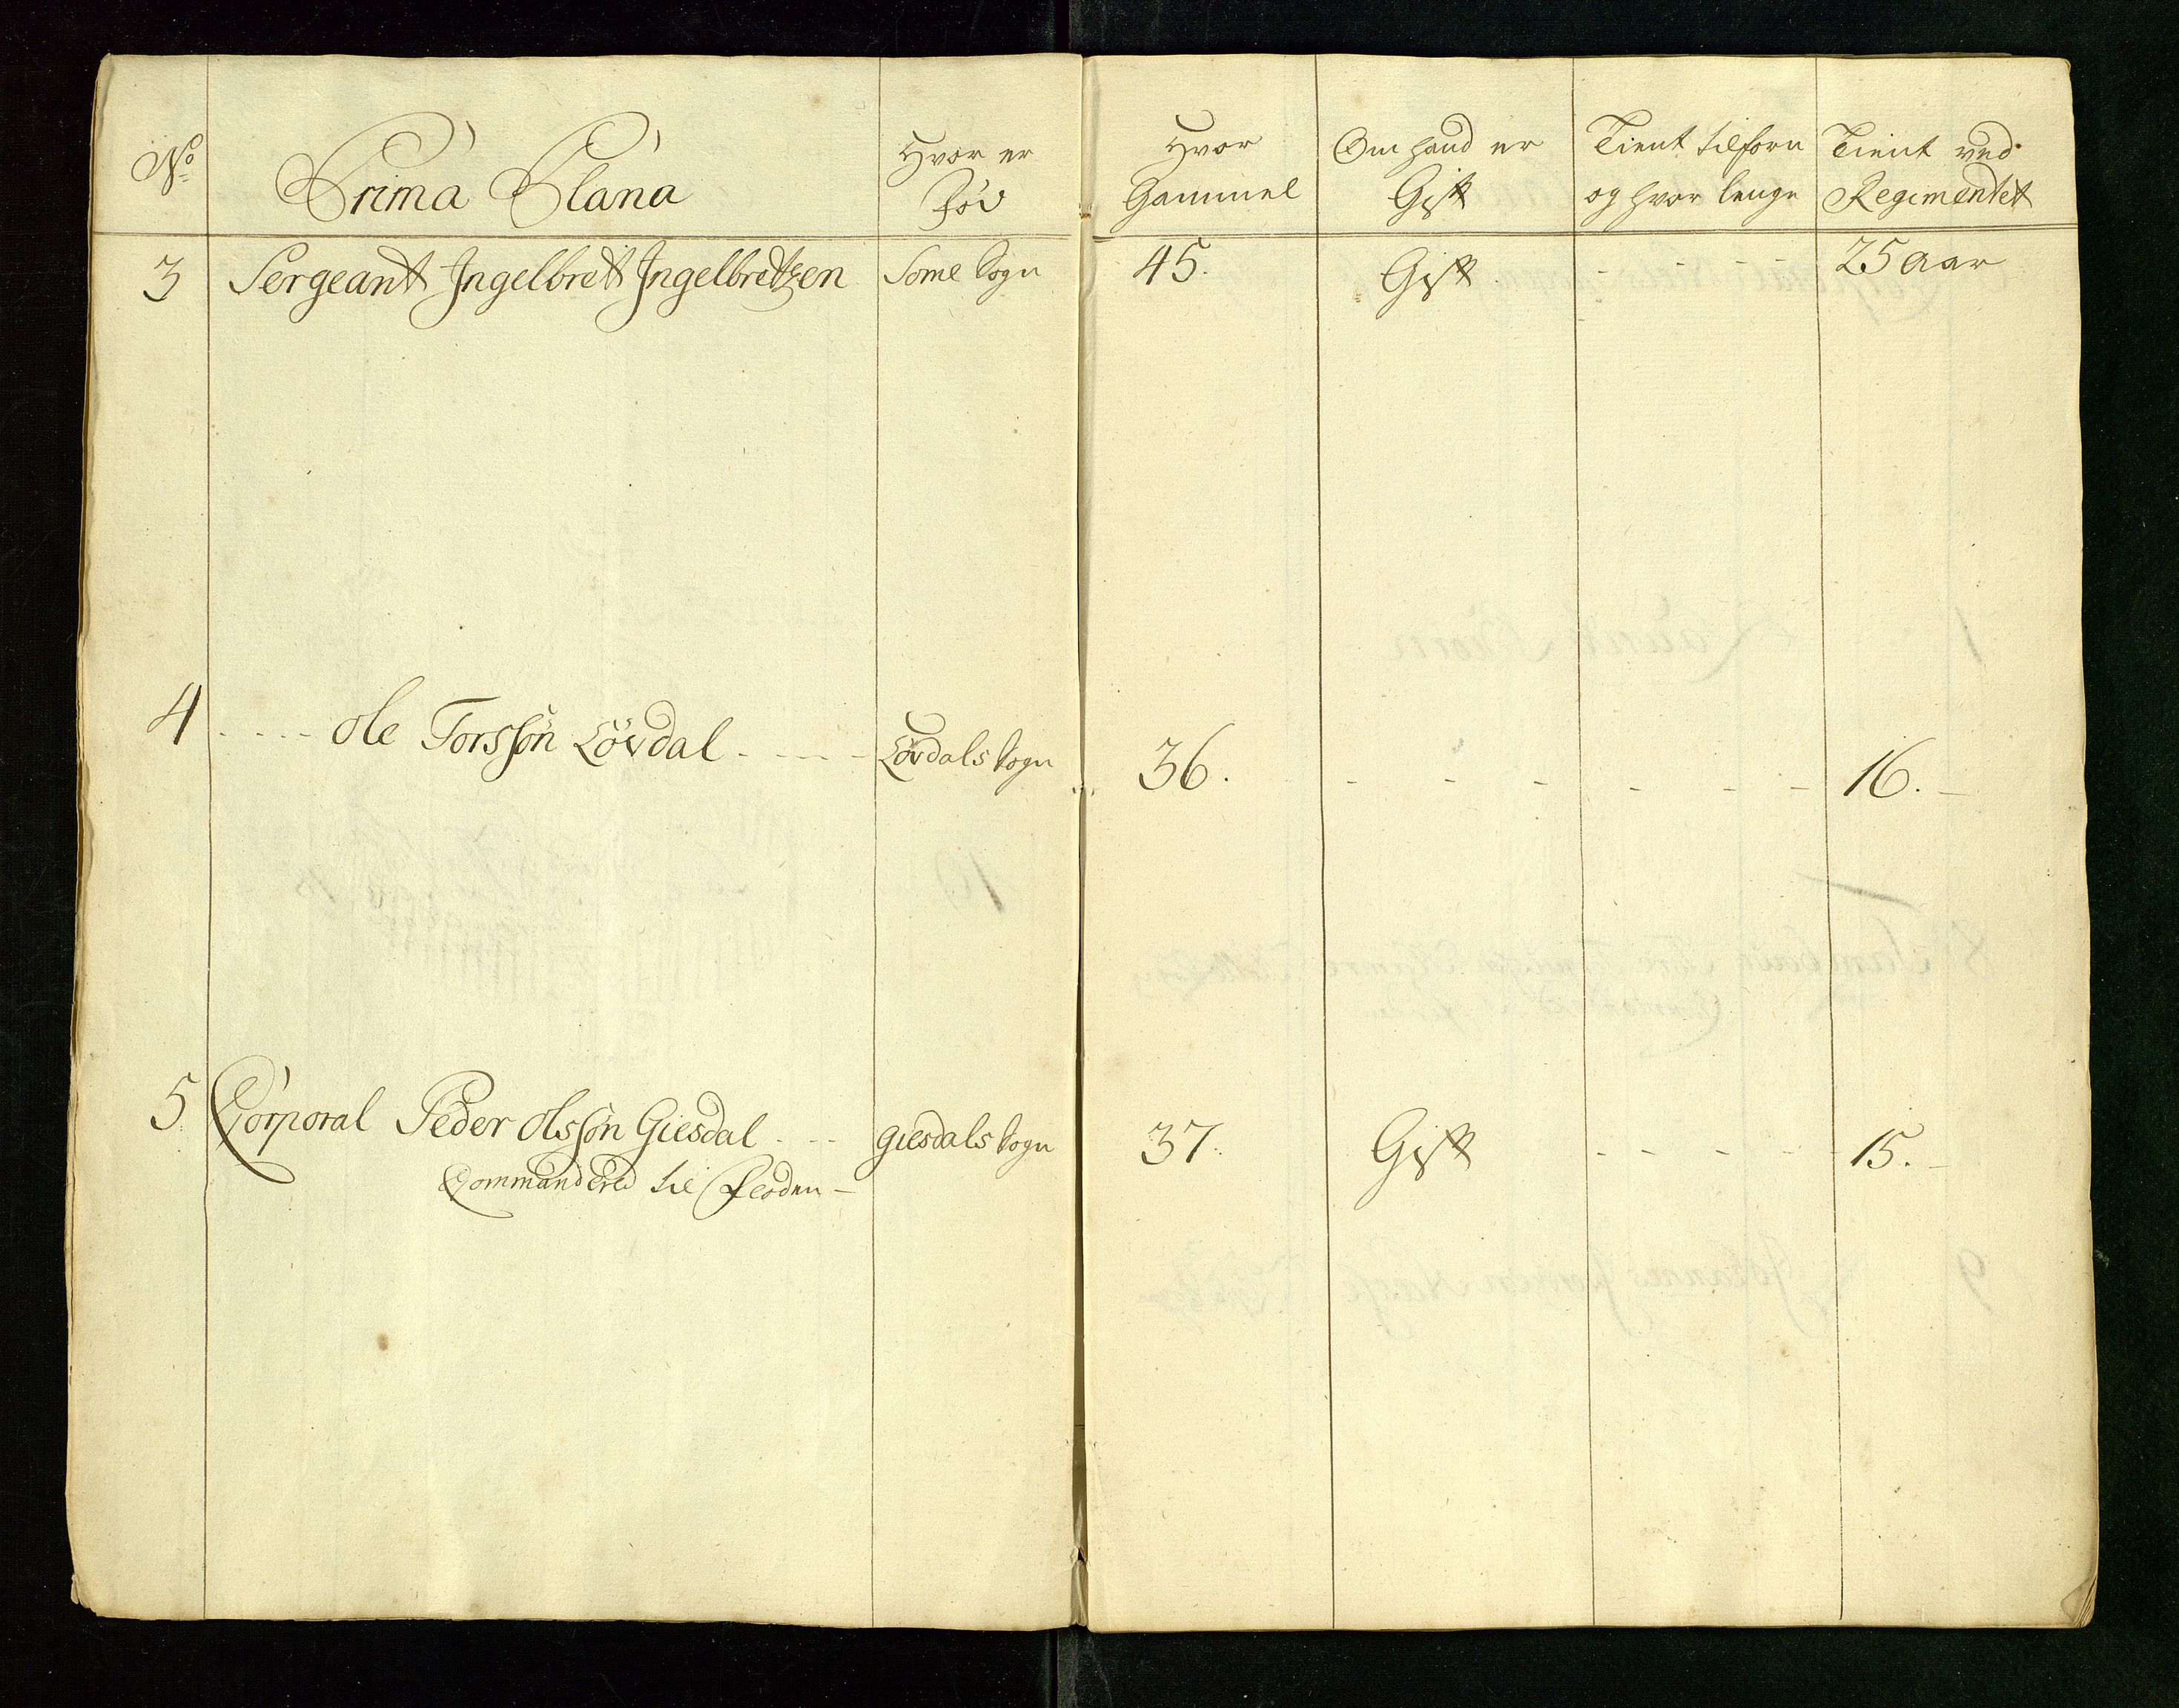 No Prima Plana Hvor er Hvor Om hand er Tient tilforn Tient ved
Fød Gammel Gift og hvor lenge Regimentet
3 Sergeant Ingelbret Ingelbretzen Some Sogn 45. Gift - - - - - 25 Aar
4 - - - - Ole Torssøn Lövdal - - - - Lövdals Sogn 36. - - - - - - 16. -
5 Corporal Peder Olssøn Giesdal - - - Giesdals Sogn 37. Gift - - - - - 15. -
Commandered til Floden -